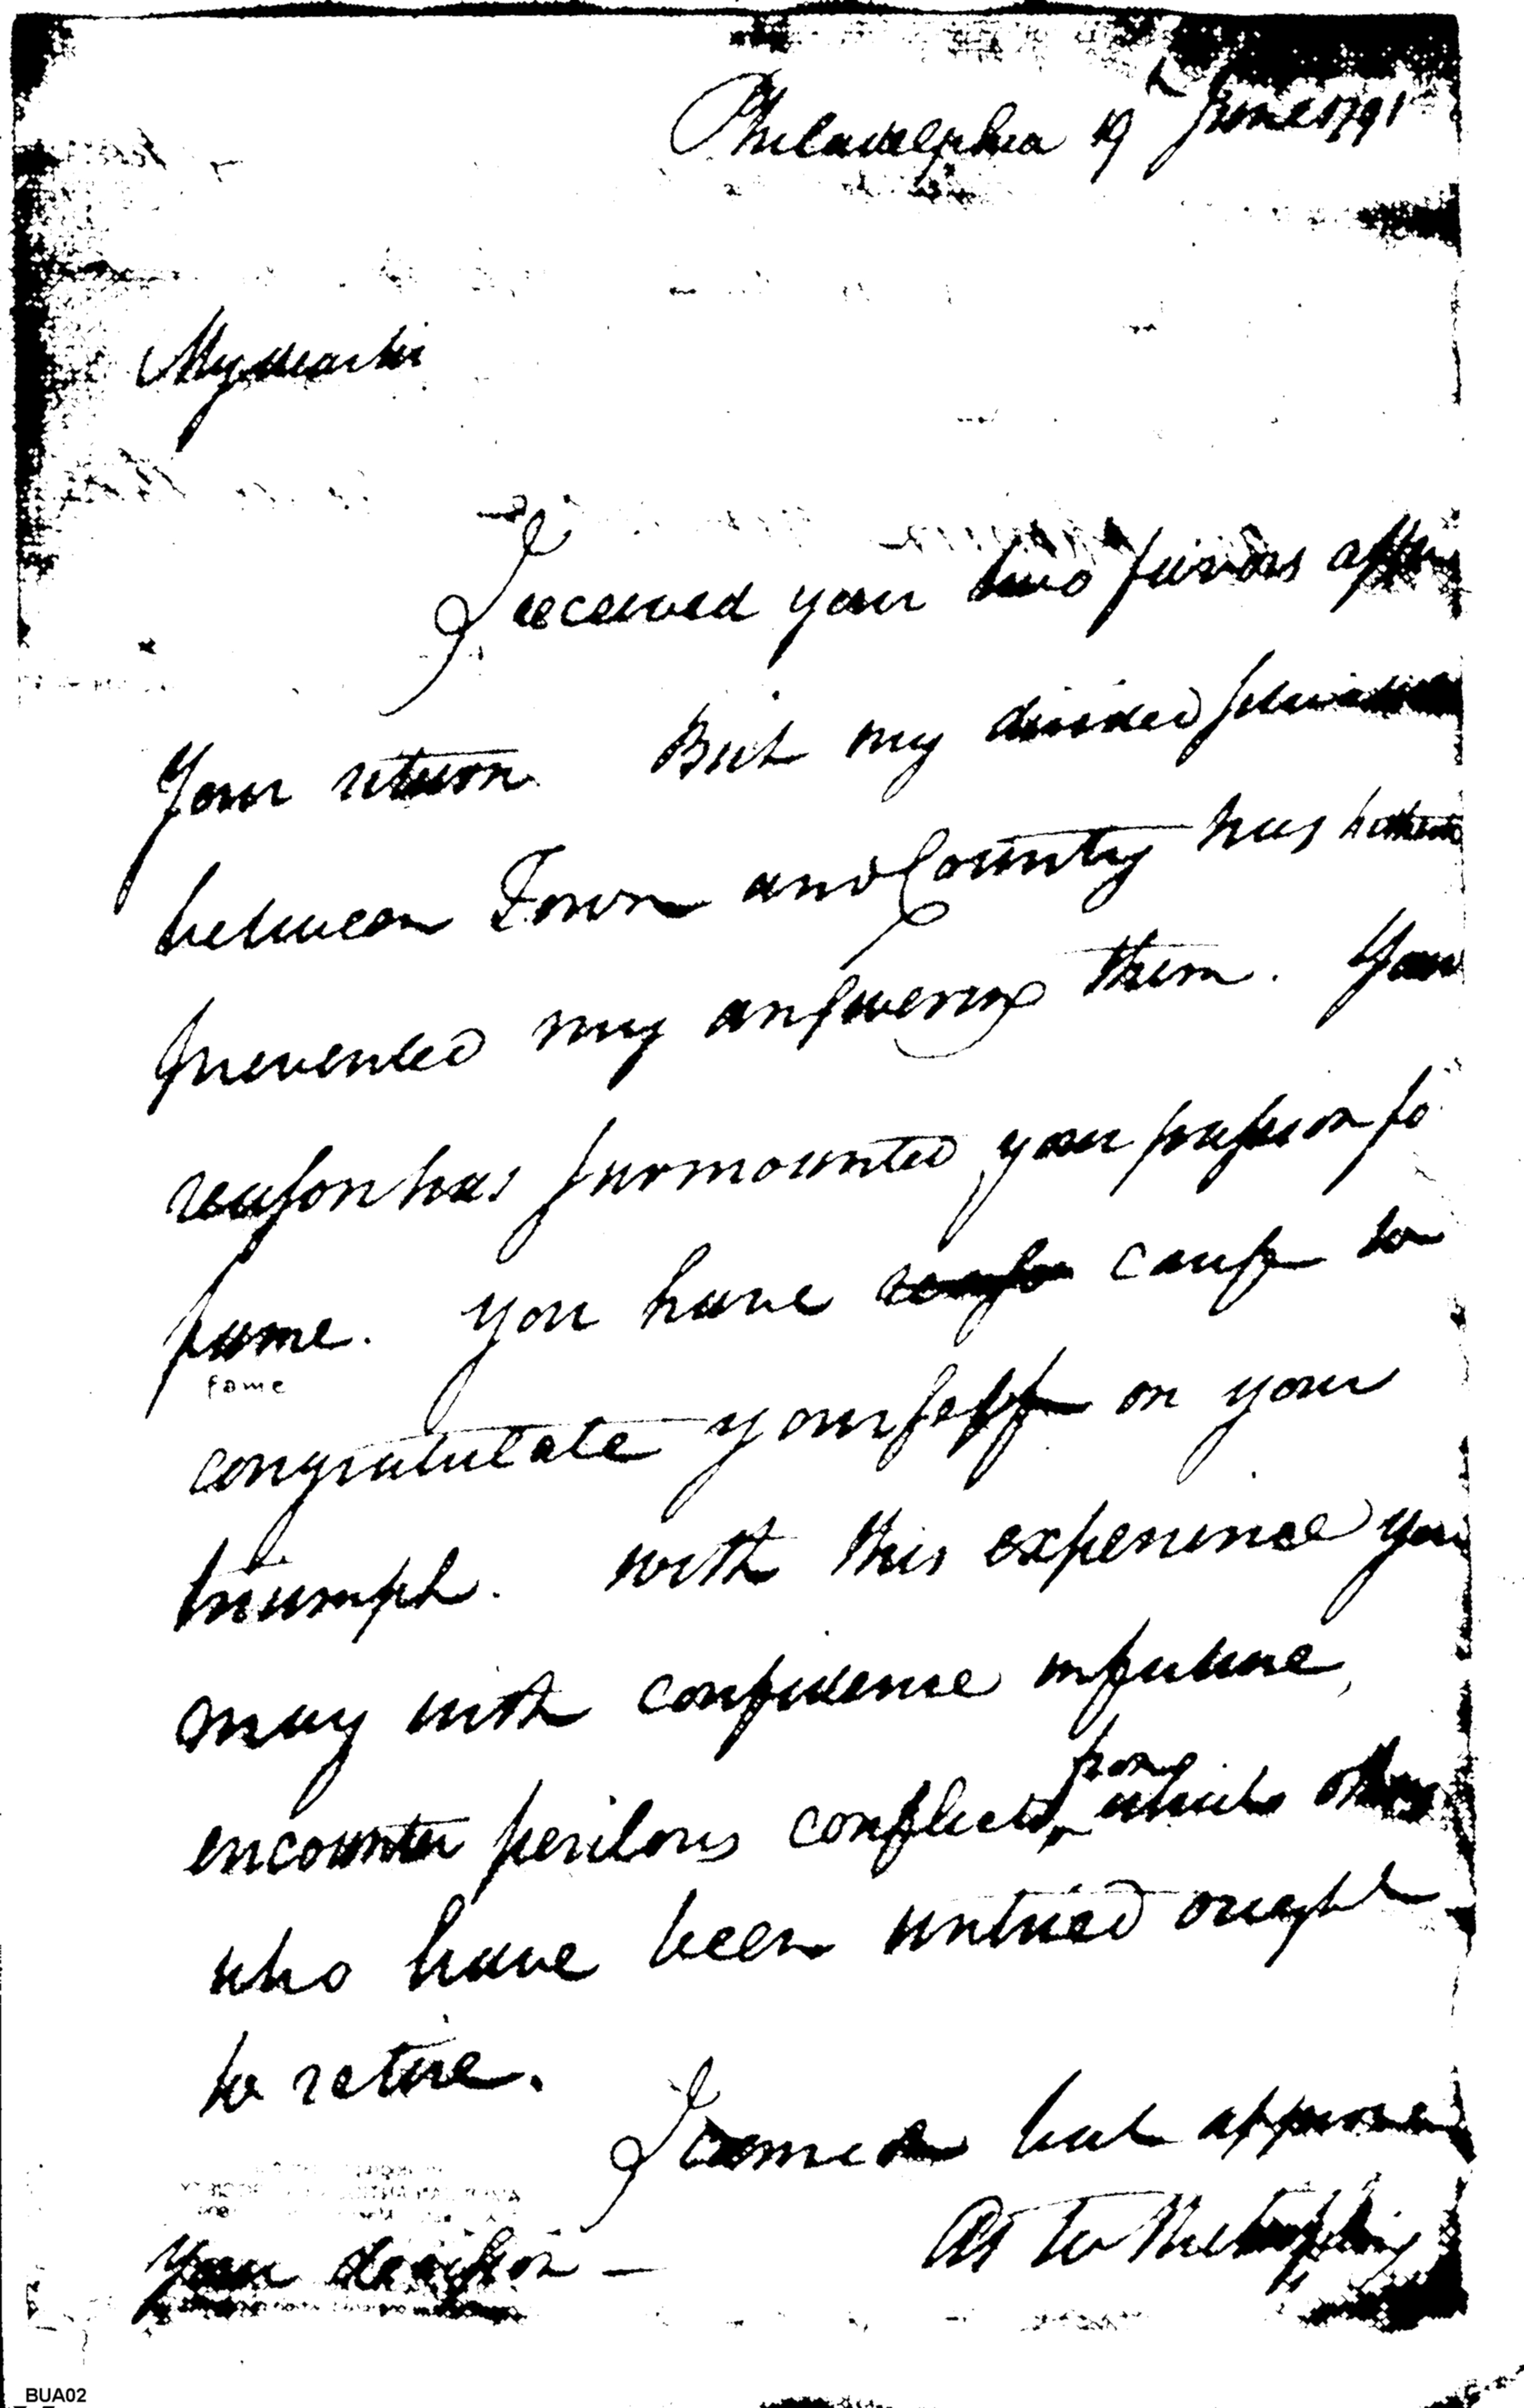 Philadelphia 19th June 1791
My dear sir
I received your two favors after
Your return But my divided
between Town and County has hitherto
prevented my answering them. Your
reason has surmounted your passion fo
fame. You have cause to
fame
congratulate yourself on your
triumph. with this experience you
may with confidence in future,
from
encounter perilous conflicts, which others
who have been untried ought
to retire.
I cannot but approve
your decision —
As to the
BUA02